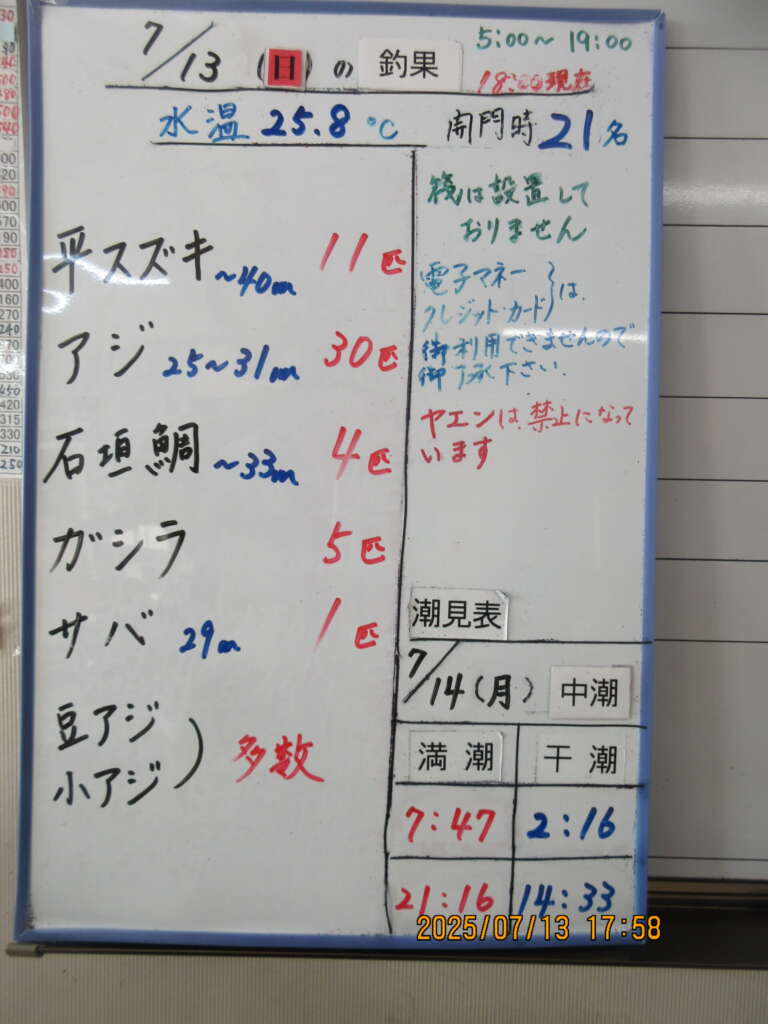 7/13(日)の釣果
5:00～19:00
18:00現在
水温 25.8℃
開門時21名
平スズキ ～40cm 11匹
アジ 25～31cm 30匹
石垣鯛 ～33cm 4匹
ガシラ 5匹
サバ 29cm 1匹
豆アジ
小アジ ) 多数
筏は設置して
おりません
電子マネー
クレジット・カード } は
御利用できませんので
御了承下さい.
ヤエンは禁止になって
います
潮見表
7/14(月) 中潮
満潮 干潮
7:47 2:16
21:16 14:33
2025/07/13 17:58